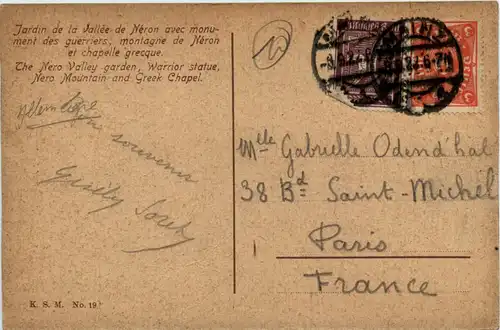 Jardin de la Vallée de Néron avec monu-
ment des guerriers, montagne de Néron
et chapelle grecque.
The Nero Valley garden, Warrior statue,
Nero Mountain and Greek Chapel.
souvenir
Mlle Gabrielle Odend'hal
38 Bd Saint-Michel
Paris
France
K. S. M. No. 19